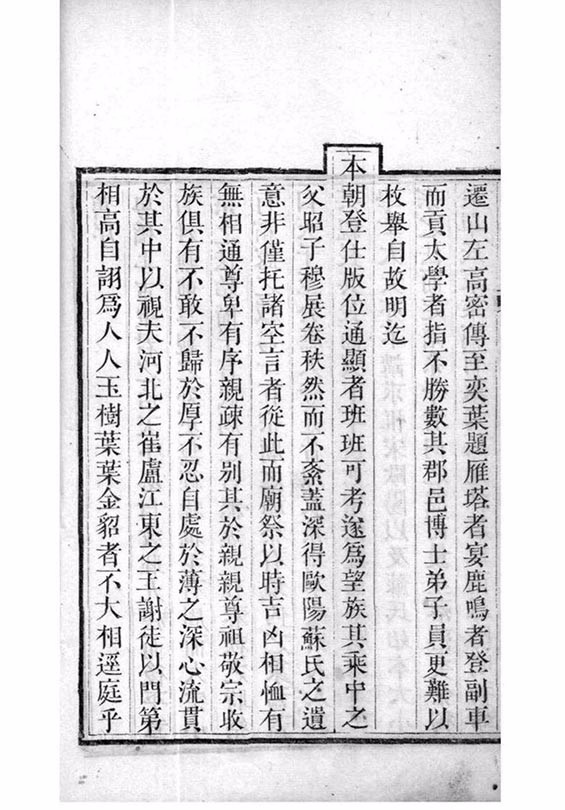 遷山左高密傳至奕葉題雁塔者宴鹿鳴者登副車
而貢太學者指不勝數其郡邑博士弟子員更難以
枚舉自故明迄
本朝登仕版位通顯者班班可考遂為望族其乘中之
父昭子穆展卷秩然而不紊蓋深得歐陽蘇氏之遺
意非僅托諸空言者從此而廟祭以時吉凶相恤有
無相通尊卑有序親疎有别其於親親尊祖敬宗收
族俱有不敢不歸於厚不忍自處於薄之深心流貫
於其中以視夫河北之崔盧江東之王謝徒以門第
相高自詡為人人玉樹葉葉金貂者不大相逕庭乎